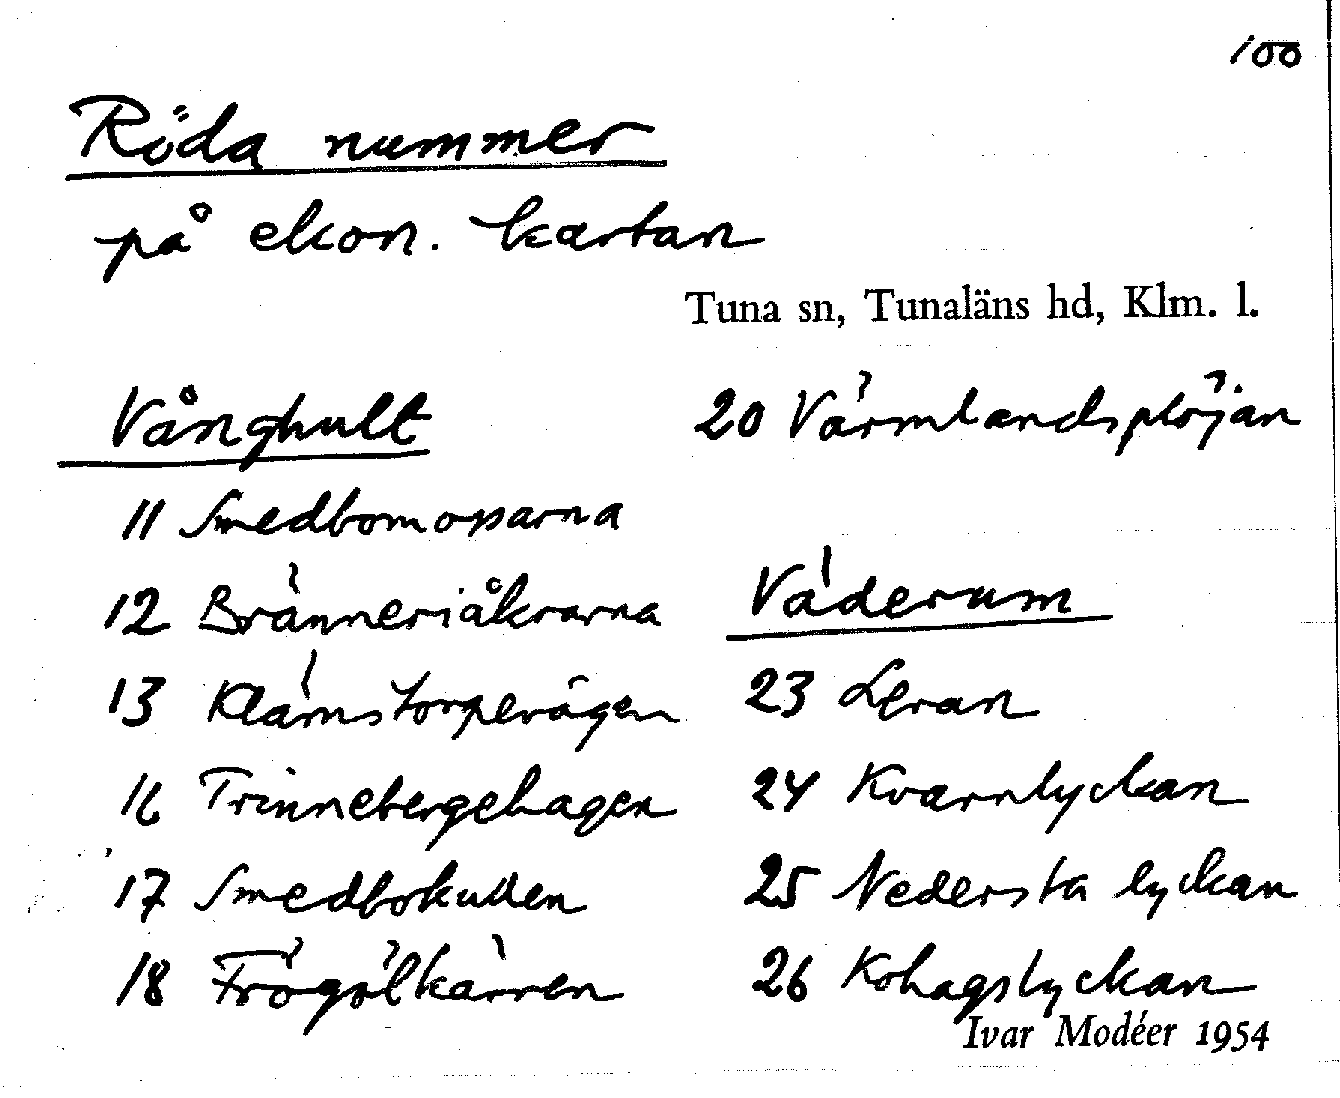 100
Röda nummer
på ekon. kartan
Tuna sn, Tunaläns hd, Klm. l.
Vånghult
11 Smedbomossarna
12 Bränneriåkrarna
13 Klämstorpevägen
16 Trinnebergehagen
17 Smedbokullen
18 Frögölkärren
20 Värmlandsplöjan
Väderum
23 Leran
24 Kvarnlyckan
25 Nedersta lyckan
26 Kohagslyckan
Ivar Modéer 1954